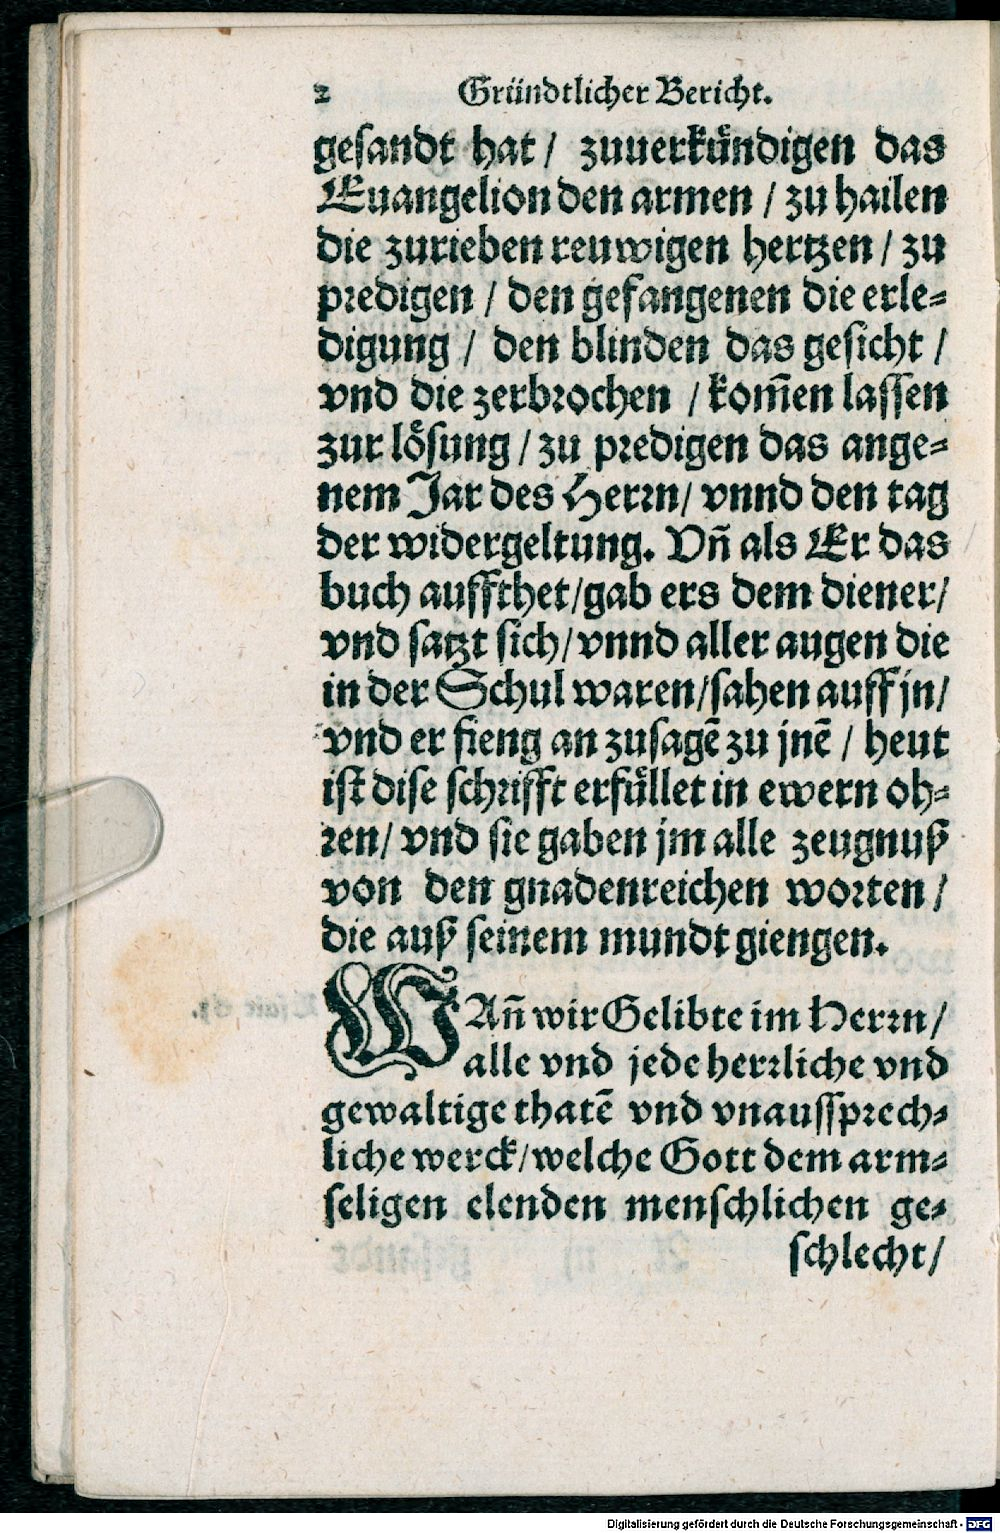 2 Gründtlicher Bericht.
gesandt hat / zuuerkündigen das
Euangelion den armen / zu hailen
die zurieben reuwigen hertzen / zu
predigen / den gefangenen die erle-
digung / den blinden das gesicht /
vnd die zerbrochen / kom̃en lassen
zur lösung / zu predigen das ange-
nem Jar des Herrn / vnnd den tag
der widergeltung. Vñ als Er das
buch auffthet / gab ers dem diener /
vnd satzt sich / vnnd aller augen die
in der Schul waren / sahen auff jn /
vnd er fieng an zusagẽ zu jnẽ / heut
ist dise schrifft erfüllet in ewern oh-
ren / vnd sie gaben jm alle zeugnuß
von den gnadenreichen worten /
die auß seinem mundt giengen.
WAñ wir Gelibte im Herrn /
alle vnd jede herrliche vnd
gewaltige thatẽ vnd vnaussprech-
liche werck / welche Gott dem arm-
seligen elenden menschlichen ge-
schlecht /
Digitalisierung gefördert durch die Deutsche Forschungsgemeinschaft - DFG